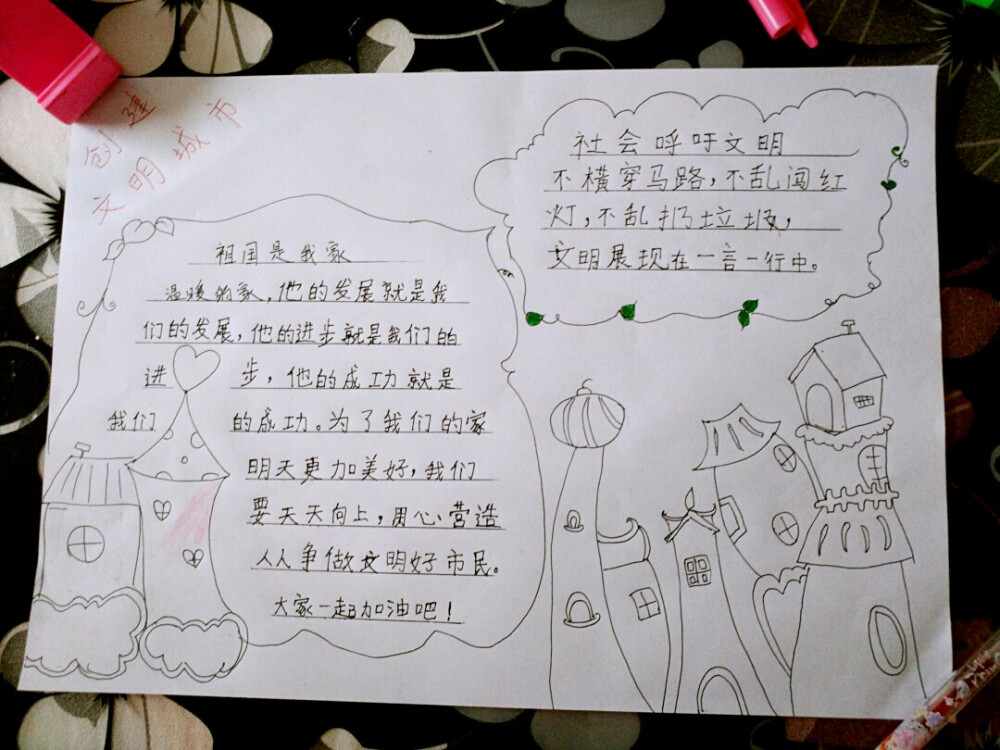 创建
文明城市
祖国是我家
温暖的家,他的发展就是我
们的发展,他的进步就是我们的
进步,他的成功就是
我们的成功。为了我们的家
明天更加美好,我们
要天天向上,用心营造
人人争做文明好市民。
大家一起加油吧!
社会呼吁文明
不横穿马路,不乱闯红
灯,不乱扔垃圾,
文明展现在一言一行中。